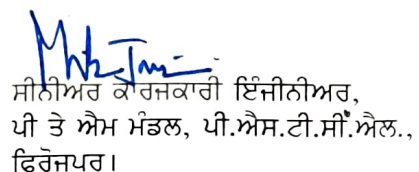 ਸੀਨੀਅਰ ਕਾਰਜਕਾਰੀ ਇੰਜੀਨੀਅਰ,
ਪੀ ਤੇ ਐਮ ਮੰਡਲ, ਪੀ.ਐਸ.ਟੀ.ਸੀ.ਐਲ.,
ਫਿਰੋਜਪੁਰ।